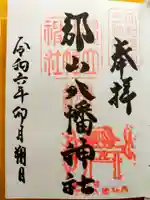 奉拝
郡山八幡神社
令和六年卯月朔日